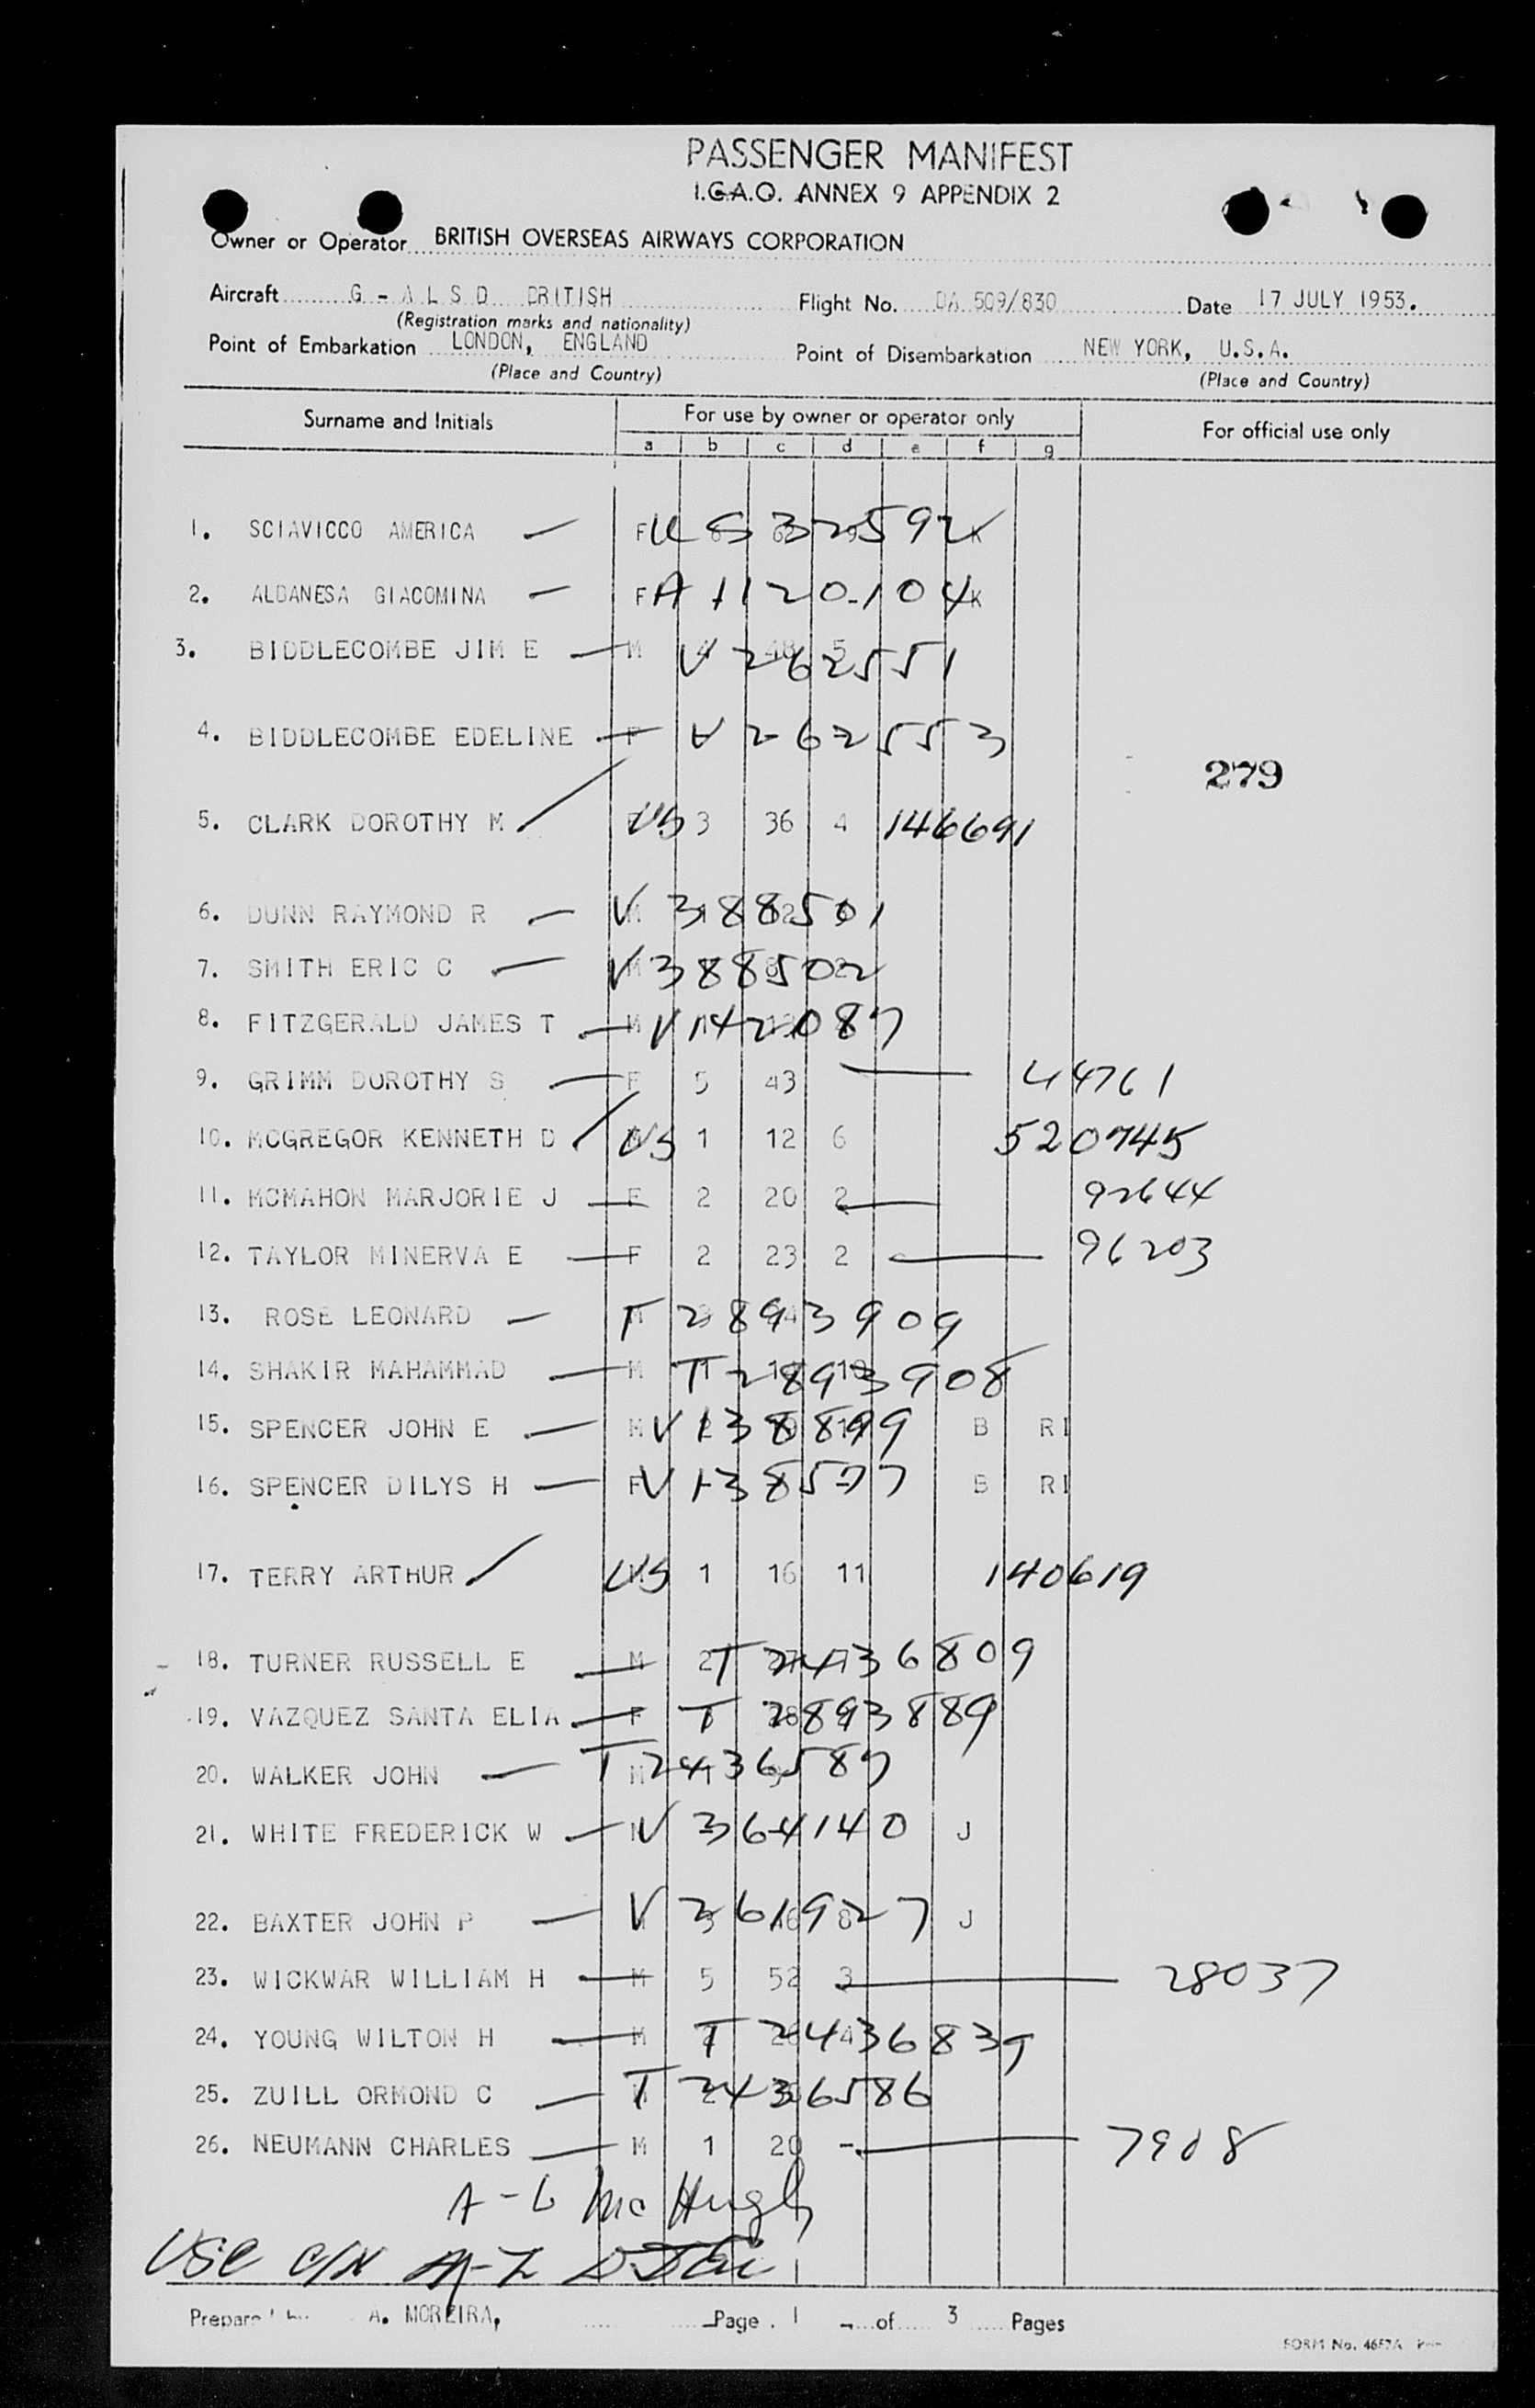 PASSENGER MANIFEST
I.C.A.O. ANNEX 9 APPENDIX 2
Owner or Operator BRITISH OVERSEAS AIRWAYS CORPORATION
Aircraft G - A L S D BRITISH Flight No. BA 509/830 Date 17 JULY 1953.
(Registration marks and nationality)
Point of Embarkation LONDON, ENGLAND Point of Disembarkation NEW YORK, U.S.A.
(Place and Country) (Place and Country)
Surname and Initials For use by owner or operator only For official use only
a b c d e f g
1. SCIAVICCO AMERICA F 832592 K
2. ALBANESA GIACOMINA F A 1120104 K
3. BIDDLECOMBE JIM E M V 262551
4. BIDDLECOMBE EDELINE F V 262553
279
5. CLARK DOROTHY M US 3 36 4 146691
6. DUNN RAYMOND R V 388501
7. SMITH ERIC C V 388502
8. FITZGERALD JAMES T M V 142087
9. GRIMM DOROTHY S F 5 43 44761
10. MCGREGOR KENNETH D US 1 12 6 520745
11. MCMAHON MARJORIE J F 2 20 2 92644
12. TAYLOR MINERVA E F 2 23 2 96203
13. ROSE LEONARD T 2893909
14. SHAKIR MAHAMMAD M T 2893908
15. SPENCER JOHN E M V 138899 B RI
16. SPENCER DILYS H F V 138577 B RI
17. TERRY ARTHUR US 1 16 11 140619
18. TURNER RUSSELL E M 2 T 2436809
19. VAZQUEZ SANTA ELIA F T 2893889
20. WALKER JOHN M T 2436587
21. WHITE FREDERICK W V 364140 J
22. BAXTER JOHN P V 361927 J
23. WICKWAR WILLIAM H M 5 52 3 28037
24. YOUNG WILTON H M T 2436839
25. ZUILL ORMOND C T 2436586
26. NEUMANN CHARLES M 1 20 - 7908
A-L McHugh
USC
Prepared by A. MOREIRA, Page 1 of 3 Pages
FORM No. 4657A